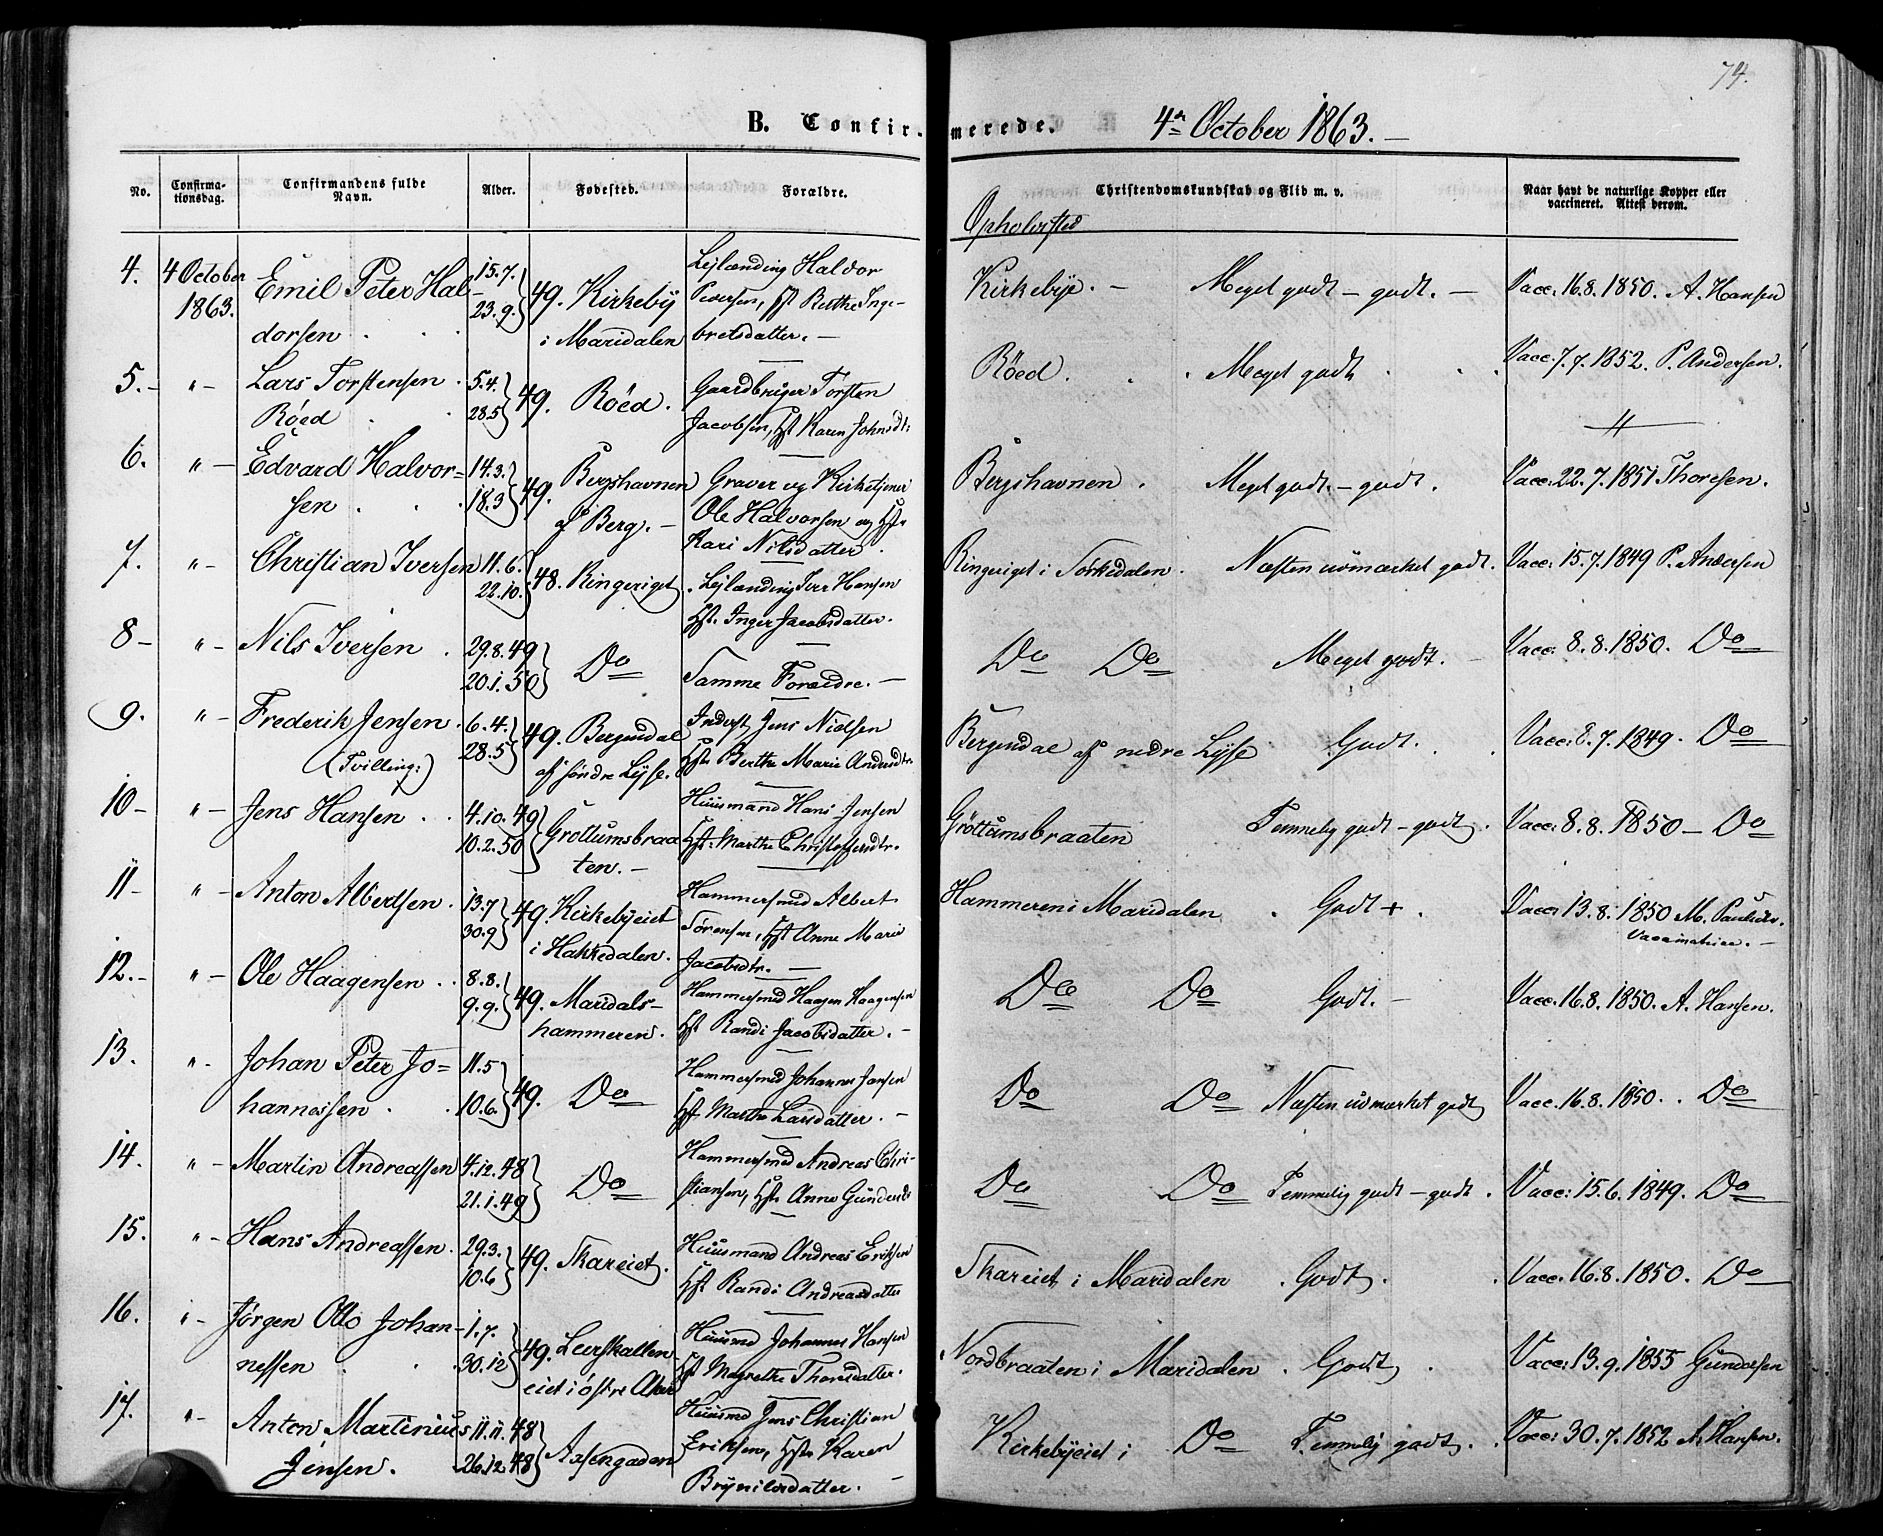 74.
B. Confir-
merede. 4de October 1863.–
No.
Confirma-
tionsdag.
Confirmandens fulde
Navn.
Alder.
Fødested.
Forældre.
Christendomskundskab og Flid m. v.
Naar havt de naturlige Kopper eller
vaccineret. Attest derom.
Opholdssted
4. 4 October 1863. Emil Peter Hal-
dorsen
15.7. 23.9. 49. Kirkeby
i Maridalen
Lejlænding Haldor
Pedersen, Hst Berthe Inge-
bretsdatter. –
Kirkebye. – Meget godt – godt. – Vacc: 16.8.1850. A. Hansen
5. – " – Lars Torstensen
Röed
5.4. 28.5 49. Röed.
Gaardbruger Torsten
Jacobsen, Hst Karen Johnsdt:
Röed. Meget godt Vacc: 7.7.1852. P. Andersen.
6. " – Edvard Halvor=
sen
14.3. 18.3 49. Bergshavnen
af Berg. –
Graver og Kirketjener
Ole Halvorsen og Hst.
Kari Nilsdatter.
Bergshavnen. Meget godt – godt. Vacc: 22.7.1851 Thoresen.
7. " – Christian Iversen 11.6. 22.10. 48. Ringeriget
Lejlænding Iver Hansen
Hst. Inger Jacobsdatter.
Ringeriget i Sörkedalen. Næsten udmærket godt. Vacc: 15.7.1849 P. Andersen
8 – " – Nils Iversen 29.8.49 20.1.50 Do
Samme Forældre. –
Do Do Meget godt. – Vacc: 8.8.1850. Do
9. " – Frederik Jensen.
(Tvilling:)
6.4. 28.5 49. Bergendal
af söndre Lysse.
Inderst Jens Nielsen
Hst. Berthe Marie Andersdtr
Bergendal af nedre Lysse Godt. Vacc: 8.7.1849. Do
10 – " – Jens Hansen 4.10.49 10.2.50 Gröttumsbraa
ten. –
Huusmand Hans Jensen
Hst. Marthe Christoffersdtr.
Gröttumsbraaten Temmelig godt – godt. Vacc: 8.8.1850 – Do
11 – " – Anton Albertsen. 13.7 30.9 49. Kirkebyeiet
i Hakkedalen.
Hammersmed Albert
Sørensen, Hst Anne Marie
Jacobsdtr. –
Hammeren i Maridalen. Godt +. Vacc: 13.8.1850 M.
Vaccinatrice. –
12. – " – Ole Haagensen 8.8. 9.9. 49. Maridals-
hammeren.
Hammersmed Haagen Haagensen
Hst Randi Jacobsdatter. –
Do Do Godt. – Vacc: 16.8.1850. A. Hansen.
13. " – Johan Peter Jo=
hannessen
11.5 10.6. 49. Do
Hammersmed Johannes Jansen
Hst Marthe Larsdatter. –
Do Do Næsten udmærket godt Vacc: 16.8.1850. Do
14. " – Martin Andreassen 4.12.48 21.1.49 Do
Hammersmed Andreas Chri-
stiansen, Hst. Anne Gundersd
Do Do Temmelig godt – godt. Vacc: 15.6.1849. Do
15. " – Hans Andreassen. 29.3. 10.6 49. Skareiet.
Huusmand Andreas Eriksen
Hst Randi Andreasdatter
Skareiet i Maridalen. Godt. Vacc: 16.8.1850. Do
16. " – Jørgen Otto Johan-
nessen
1.7. 30.12 49. Leerskallen
eiet i östre Aker
Huusmd Johannes Hansen
Hst Magrethe Thorsdatter.
Nordbraaten i Maridalen. Godt. Vacc: 13.9.1855 Gundersen
17. " – Anton Martinius
Jensen.
11.11.48 26.12.48 Assengaden
Huusmd Jens Christian
Eriksen, Hst. Karen
Brynildsdatter. –
Kirkebyeiet i Do Temmelig godt. Vacc: 30.7.1852 A. Hansen.